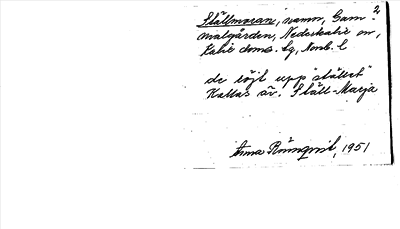 2
Ställmoran, namn, Gam-
malgården, Nederkalix sn,
Kalix doms. tg, Nmb. l.
de löjt upp "stället"
Kallas äv. Ställ-Marja
Anna Rönnqvist, 1951